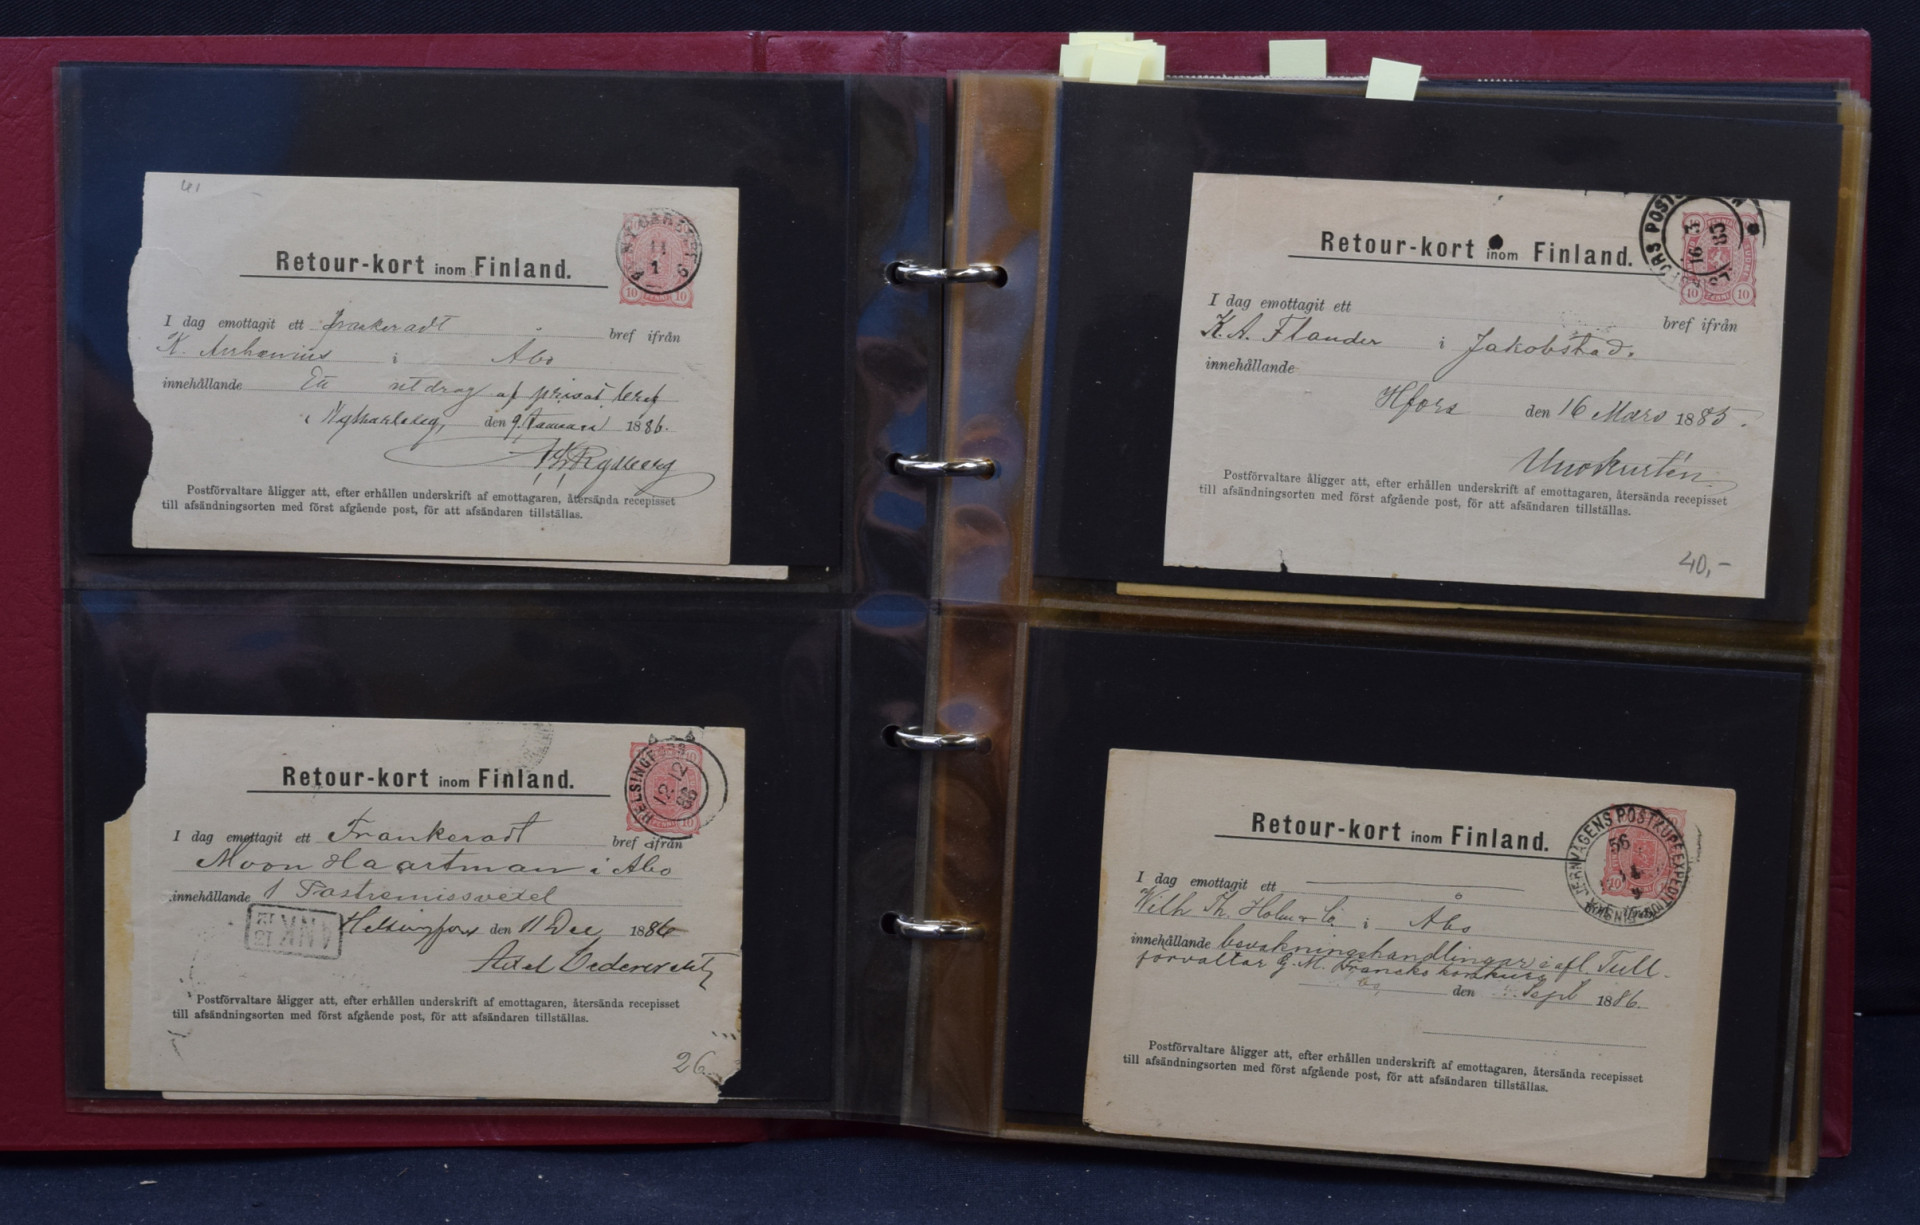 Retour-kort inom Finland.
10 10
I dag emottagit ett frankeradt bref ifrån
K. Arrhenius i Åbo
innehållande Ett utdrag af privat bref
den 9 Januari 1886.
Postförvaltare åligger att, efter erhållen underskrift af emottagaren, återsända recepisset
till afsändningsorten med först afgående post, för att afsändaren tillställas.
Retour-kort inom Finland.
HELSINGFORS
12 12
86
I dag emottagit ett Frankeradt bref ifrån
Haartman i Åbo
innehållande 1 Postremissvexel
ANK
12
Helsingfors den 11 Dec 1886
Axel
Postförvaltare åligger att, efter erhållen underskrift af emottagaren, återsända recepisset
till afsändningsorten med först afgående post, för att afsändaren tillställas.
26
Retour-kort inom Finland.
16 3
85
10 10
I dag emottagit ett
bref ifrån
K. A. Flander i Jakobstad.
innehållande
Hfors den 16 Mars 1885.
Uno Kurtén
Postförvaltare åligger att, efter erhållen underskrift af emottagaren, återsända recepisset
till afsändningsorten med först afgående post, för att afsändaren tillställas.
40,-
Retour-kort inom Finland.
FINSKA JERNVÄGENS POSTKUPEEXPEDITION
I dag emottagit ett
bref ifrån
Wilh. Th. Holm & Co. i Åbo
innehållande bevakningshandlingar i afl. Tull-
förvaltar G. M. Francks konkurs
den Sept 1886.
Postförvaltare åligger att, efter erhållen underskrift af emottagaren, återsända recepisset
till afsändningsorten med först afgående post, för att afsändaren tillställas.